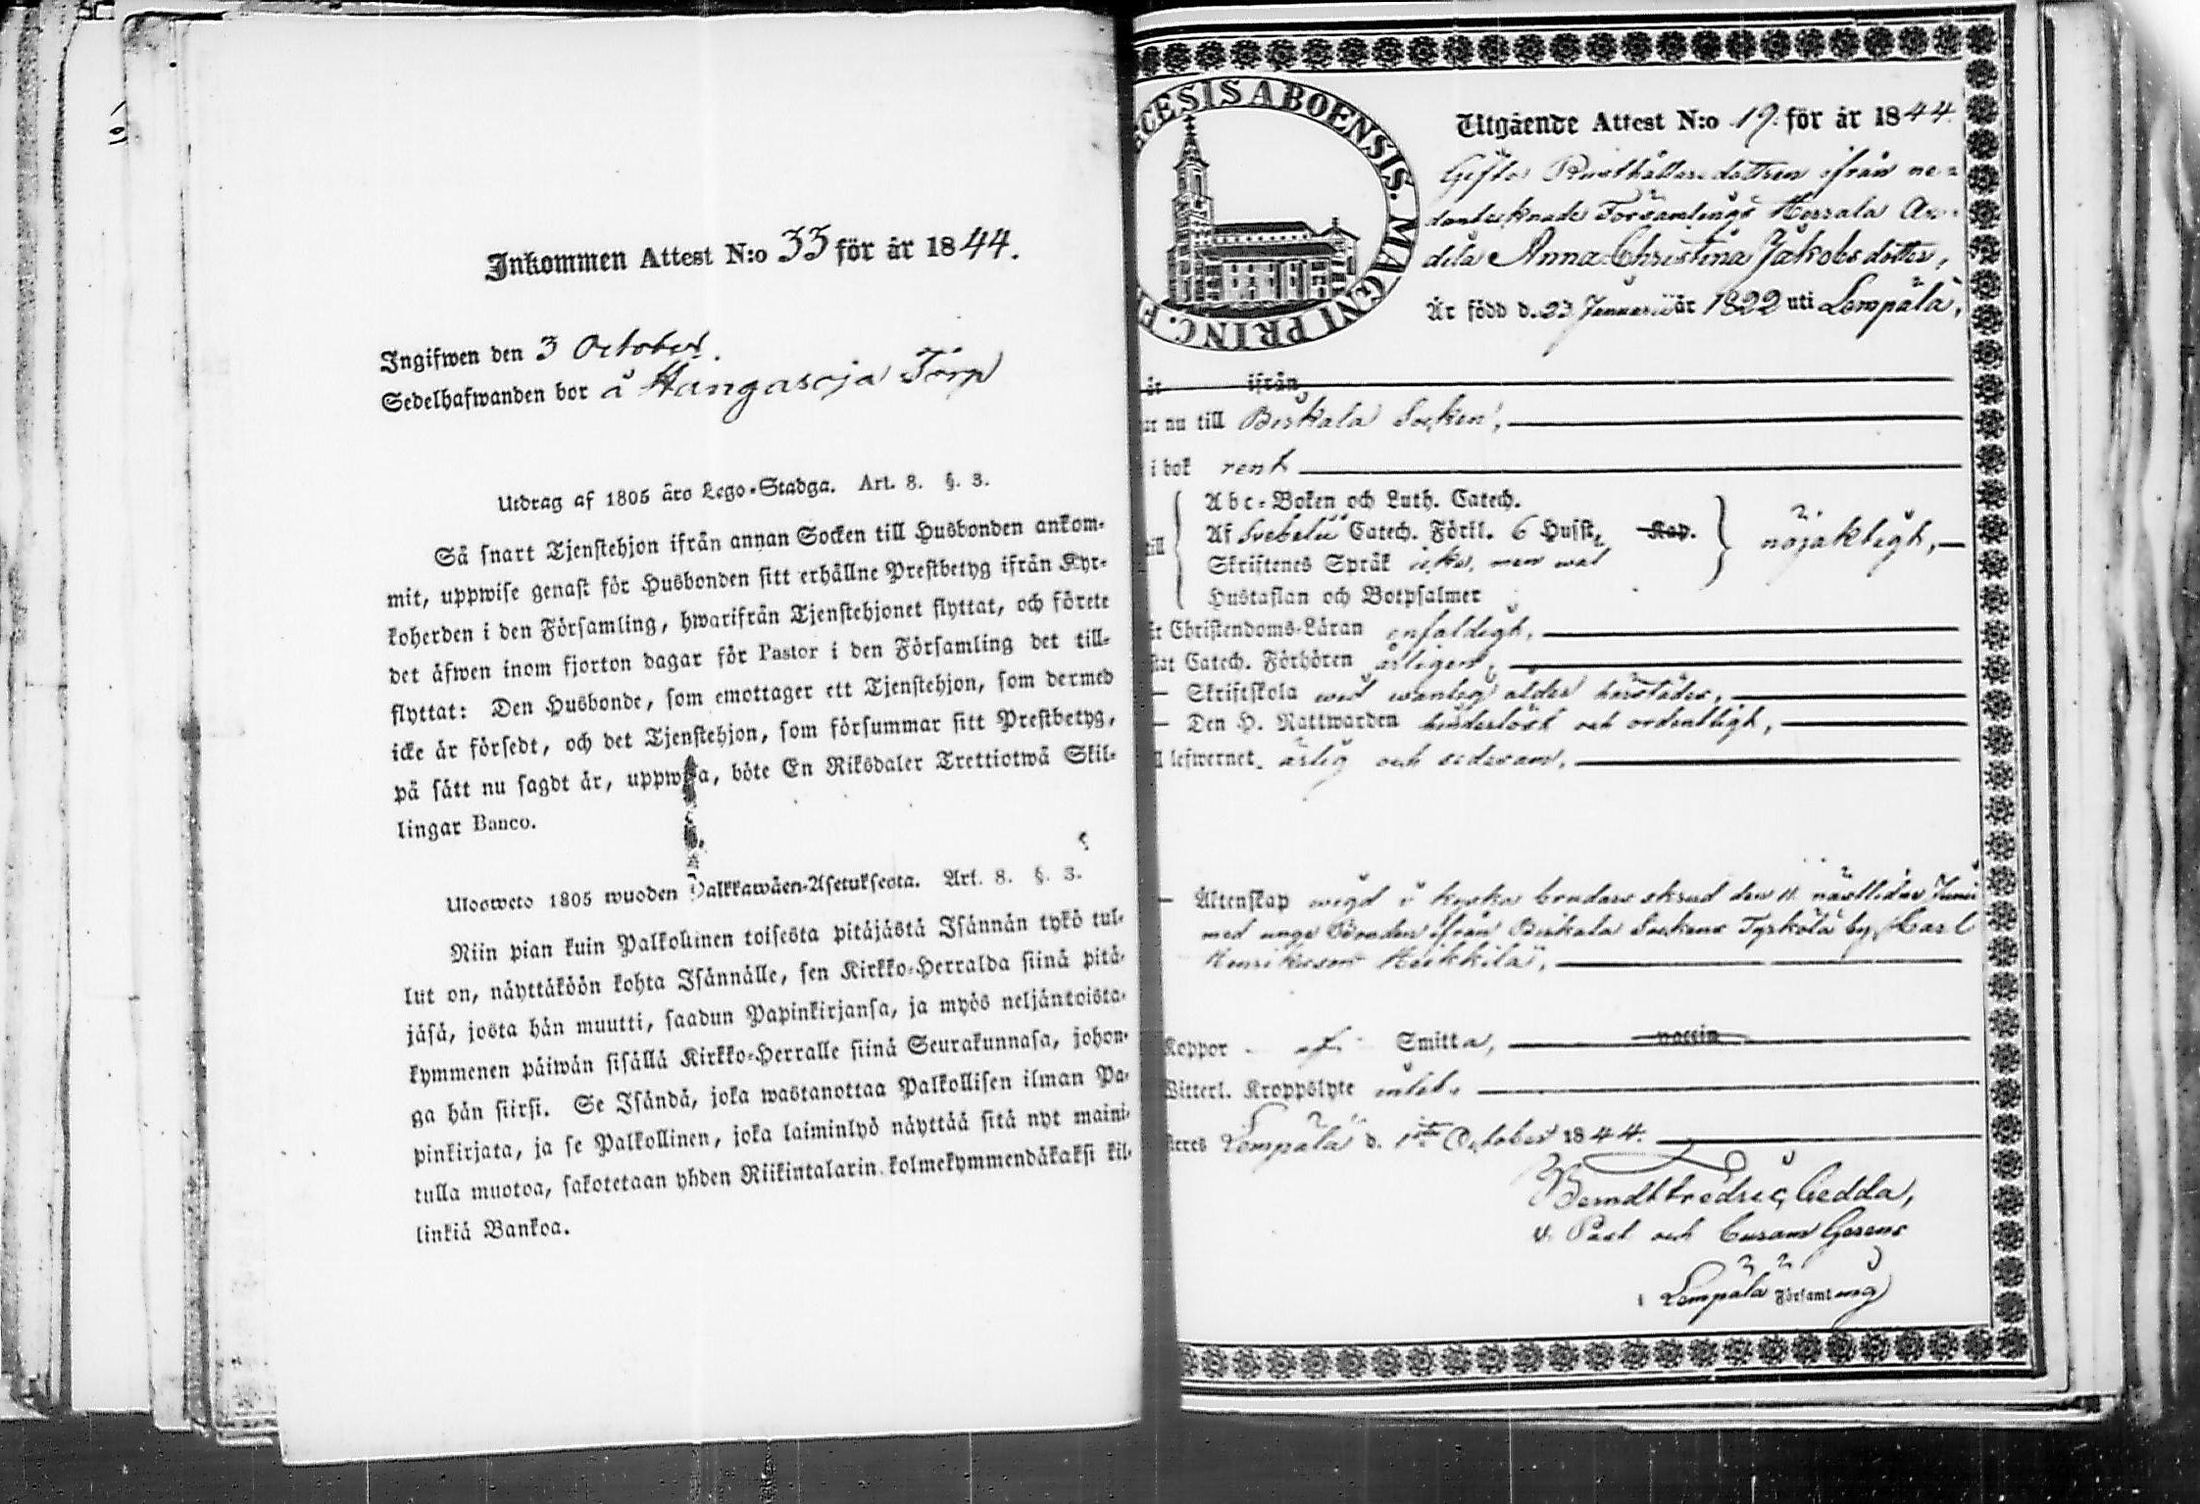 Inkommen Attest N:o 33 för år 1844.
Ingifwen den 3 October.
Sedelhafwanden bor å Hangasoja Torp
Utdrag af 1805 års Lego-Stadga. Art. 8. §. 3.
Så snart Tjenstehjon ifrån annan Socken till Husbonden ankom-
mit, uppwise genast för Husbonden sitt erhållne Prestbetyg ifrån Kyr-
koherden i den Församling, hwarifrån Tjenstehjonet flyttat, och förete
det äfwen inom fjorton dagar för Pastor i den Församling det till-
flyttat: Den Husbonde, som emottager ett Tjenstehjon, som dermed
icke är försedt, och det Tjenstehjon, som försummar sitt Prestbetyg,
på sätt nu sagdt är, uppwisa, böte En Riksdaler Trettiotwå Skil-
lingar Banco.
Ulosweto 1805 wuoden Palkkawäen-Asetuksesta. Art. 8. §. 3.
Niin pian kuin Palkollinen toisesta pitäjästä Isännän tykö tul-
lut on, näyttäköön kohta Isännälle, sen Kirkko-Herralda siinä pitä-
jäsä, josta hän muutti, saadun Papinkirjansa, ja myös neljäntoista-
kymmenen päiwän sisällä Kirkko-Herralle siinä Seurakunnasa, johon-
ga hän siirsi. Se Isändä, joka wastanottaa Palkollisen ilman Pa-
pinkirjata, ja se Palkollinen, joka laiminlyö näyttää sitä nyt maini-
tulla muotoa, sakotetaan yhden Riikintalarin kolmekymmendäkaksi kil-
linkiä Bankoa.
CESIS ABOENSIS. MAGNI PRINC. F
Utgående Attest N:o 19. för år 1844.
Gifta Rusthållaredottren ifrån ne-
dantecknade Församlings Herrala An-
dela Anna Christina Jakobsdotter,
Är född d. 23 Januarii år 1822 uti Lempälä,
år ifrån
ar nu till Birkala Socken,
i bok rent
till
Abc-Boken och Luth. Catech.
Af Svebelii Catech. Förkl. 6 Hufst. Kap.
Skriftenes Språk icke, men wäl
Hustaflan och Botpsalmer
nöjaktigt,
är Christendoms-Läran enfaldigt,
stat Catech. Förhören årligen,
— Skriftskola wid wanlig ålder härstädes,
— Den H. Nattwarden hinderlöst och ordentligt,
ll lefwernet ärlig och sedesam,
— Äktenskap wigd i kyska brudars skrud den 11 nästlidne Junii
med unge Bonden ifrån Birkala Sockens Tyrkölä by, Carl
Henriksson Heikkilä,
Koppor af Smitta, vaccin
Witterl. Kroppslyte intet.
steres Lempälä d. 1ste October 1844.
Berndt Fredric Gedda,
v. Past och Curam Gerens
i Lempälä Församling